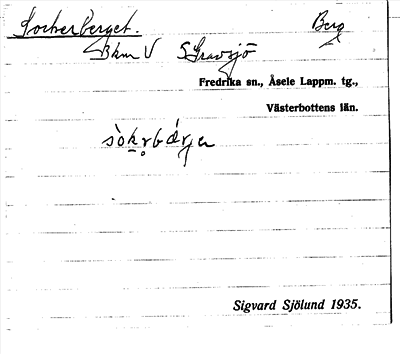 Sockerberget. Berg
Bkm V S Gravsjö
Fredrika sn., Åsele Lappm. tg.,
Västerbottens län.
Sigvard Sjölund 1935.